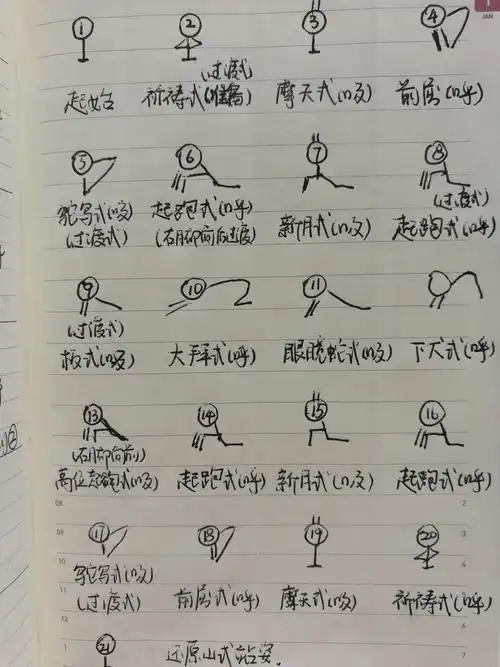 1
JAN
① ② ③ ④
(过渡式)
起始 祈祷式 摩天式(吸) 前屈(呼)
⑤ ⑥ ⑦ ⑧
(过渡式)
鸵鸟式(吸) 起跑式(呼) 新月式(吸) 起跑式(呼)
(过渡式) (右脚向后过渡)
9 ⑩ ⑪
(过渡式)
板式(吸) 大拜式(呼) 眼镜蛇式(吸) 下犬式(呼)
⑬ ⑭ ⑮ ⑯
(右脚向前)
高位起跑式(吸) 起跑式(呼) 新月式(吸) 起跑式(呼)
08
2
⑰ ⑱ ⑲ ⑳
09
3
10
4
鸵鸟式(吸)
(过渡式) 前屈式(呼) 摩天式(吸) 祈祷式(呼)
11
5
12
6
㉑ 还原山式站姿.
1
7
②